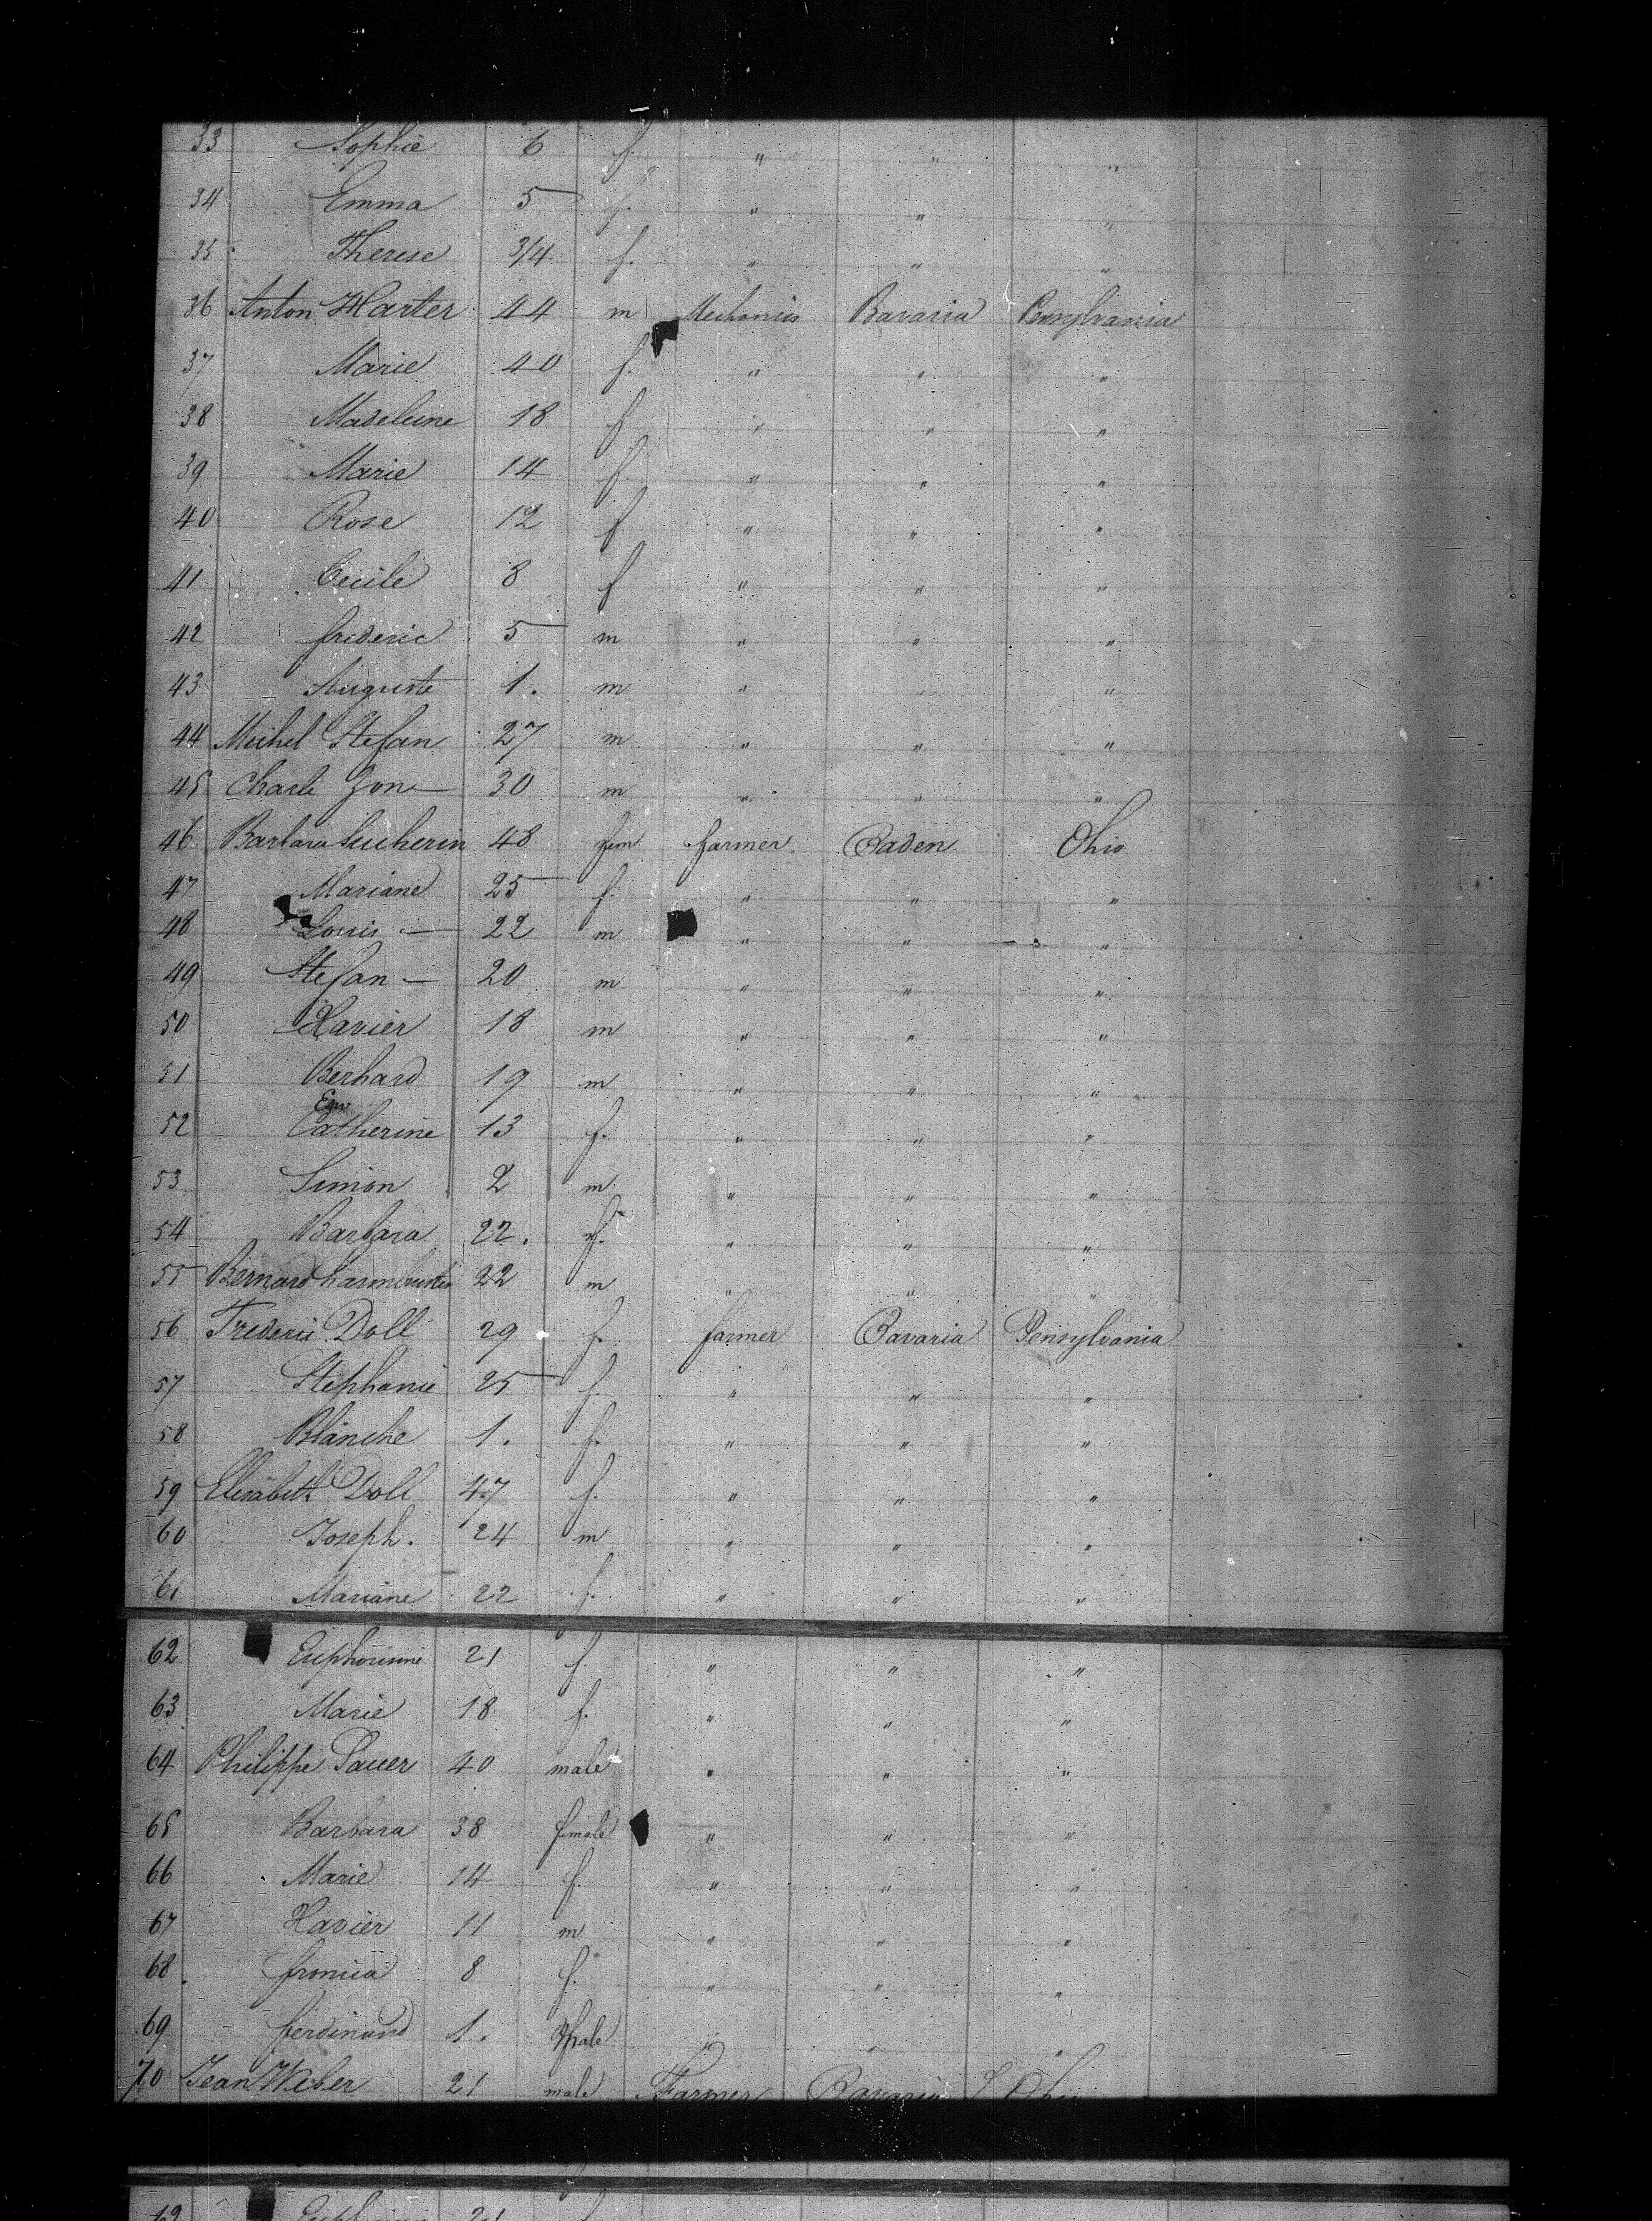 33 Sophie 6 f. " " "
34 Emma 5 f. " " "
35 Therese 3/4 f. " " "
36 Anton Harter 44 m Mechanics Bavaria Pensylvania
37 Marie 40 f. " " "
38 Madeleine 18 f " " "
39 Marie 14 f " " "
40 Rose 12 f " " "
41 Cecile 8 f " " "
42 frederic 5 m " " "
43 Auguste 1. m " " "
44 Michel Stefan 27 m " " "
45 Charle 30 m " " "
46 Barbara 48 fem farmer Baden Ohio
47 Mariane 25 f. " " "
48 Louis — 22 m " " "
49 Stefan — 20 m " " "
50 Xavier 18 m " " "
51 Berhard 19 m " " "
52 Catherine 13 f. " " "
53 Simon 2 m " " "
54 Barbara 22. f. " " "
55 Bernard 22 m " " "
56 Frederic Doll 29 f. farmer Bavaria Pensylvania
57 Stephanie 25 f. " " "
58 Blanche 1. f. " " "
59 Elisabeth Doll 47 f. " " "
60 Joseph. 24 m " " "
61 Mariane 22 f. " " "
62 21 f. " " "
63 Marie 18 f. " " "
64 Philippe Sauer 40 male " " "
65 Barbara 38 female " " "
66 Marie 14 f. " " "
67 Xavier 11 m " " "
68 8 f. " " "
69 ferdinand 1. Male " " "
70 Jean Weber 21 male Farmer Bavaria Ohio
62 21